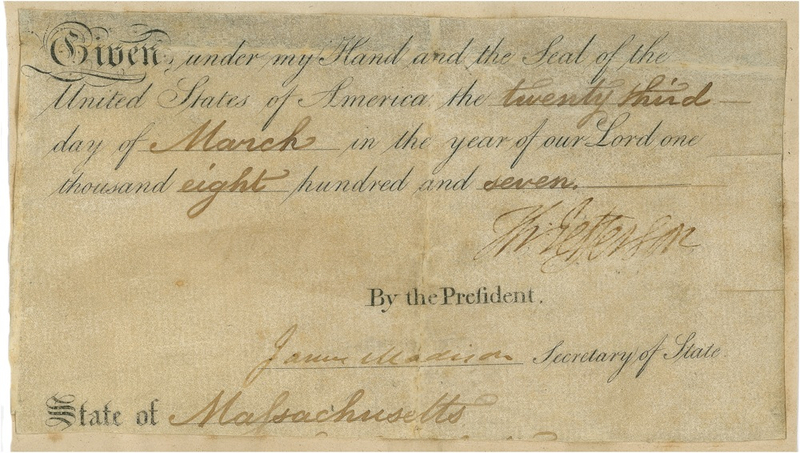 Given, under my Hand and the Seal of the
United States of America, the twenty third
day of March in the year of our Lord one
thousand eight hundred and seven.
Th: Jefferson
By the Preſident.
James Madison Secretary of State.
State of Maſsachusetts